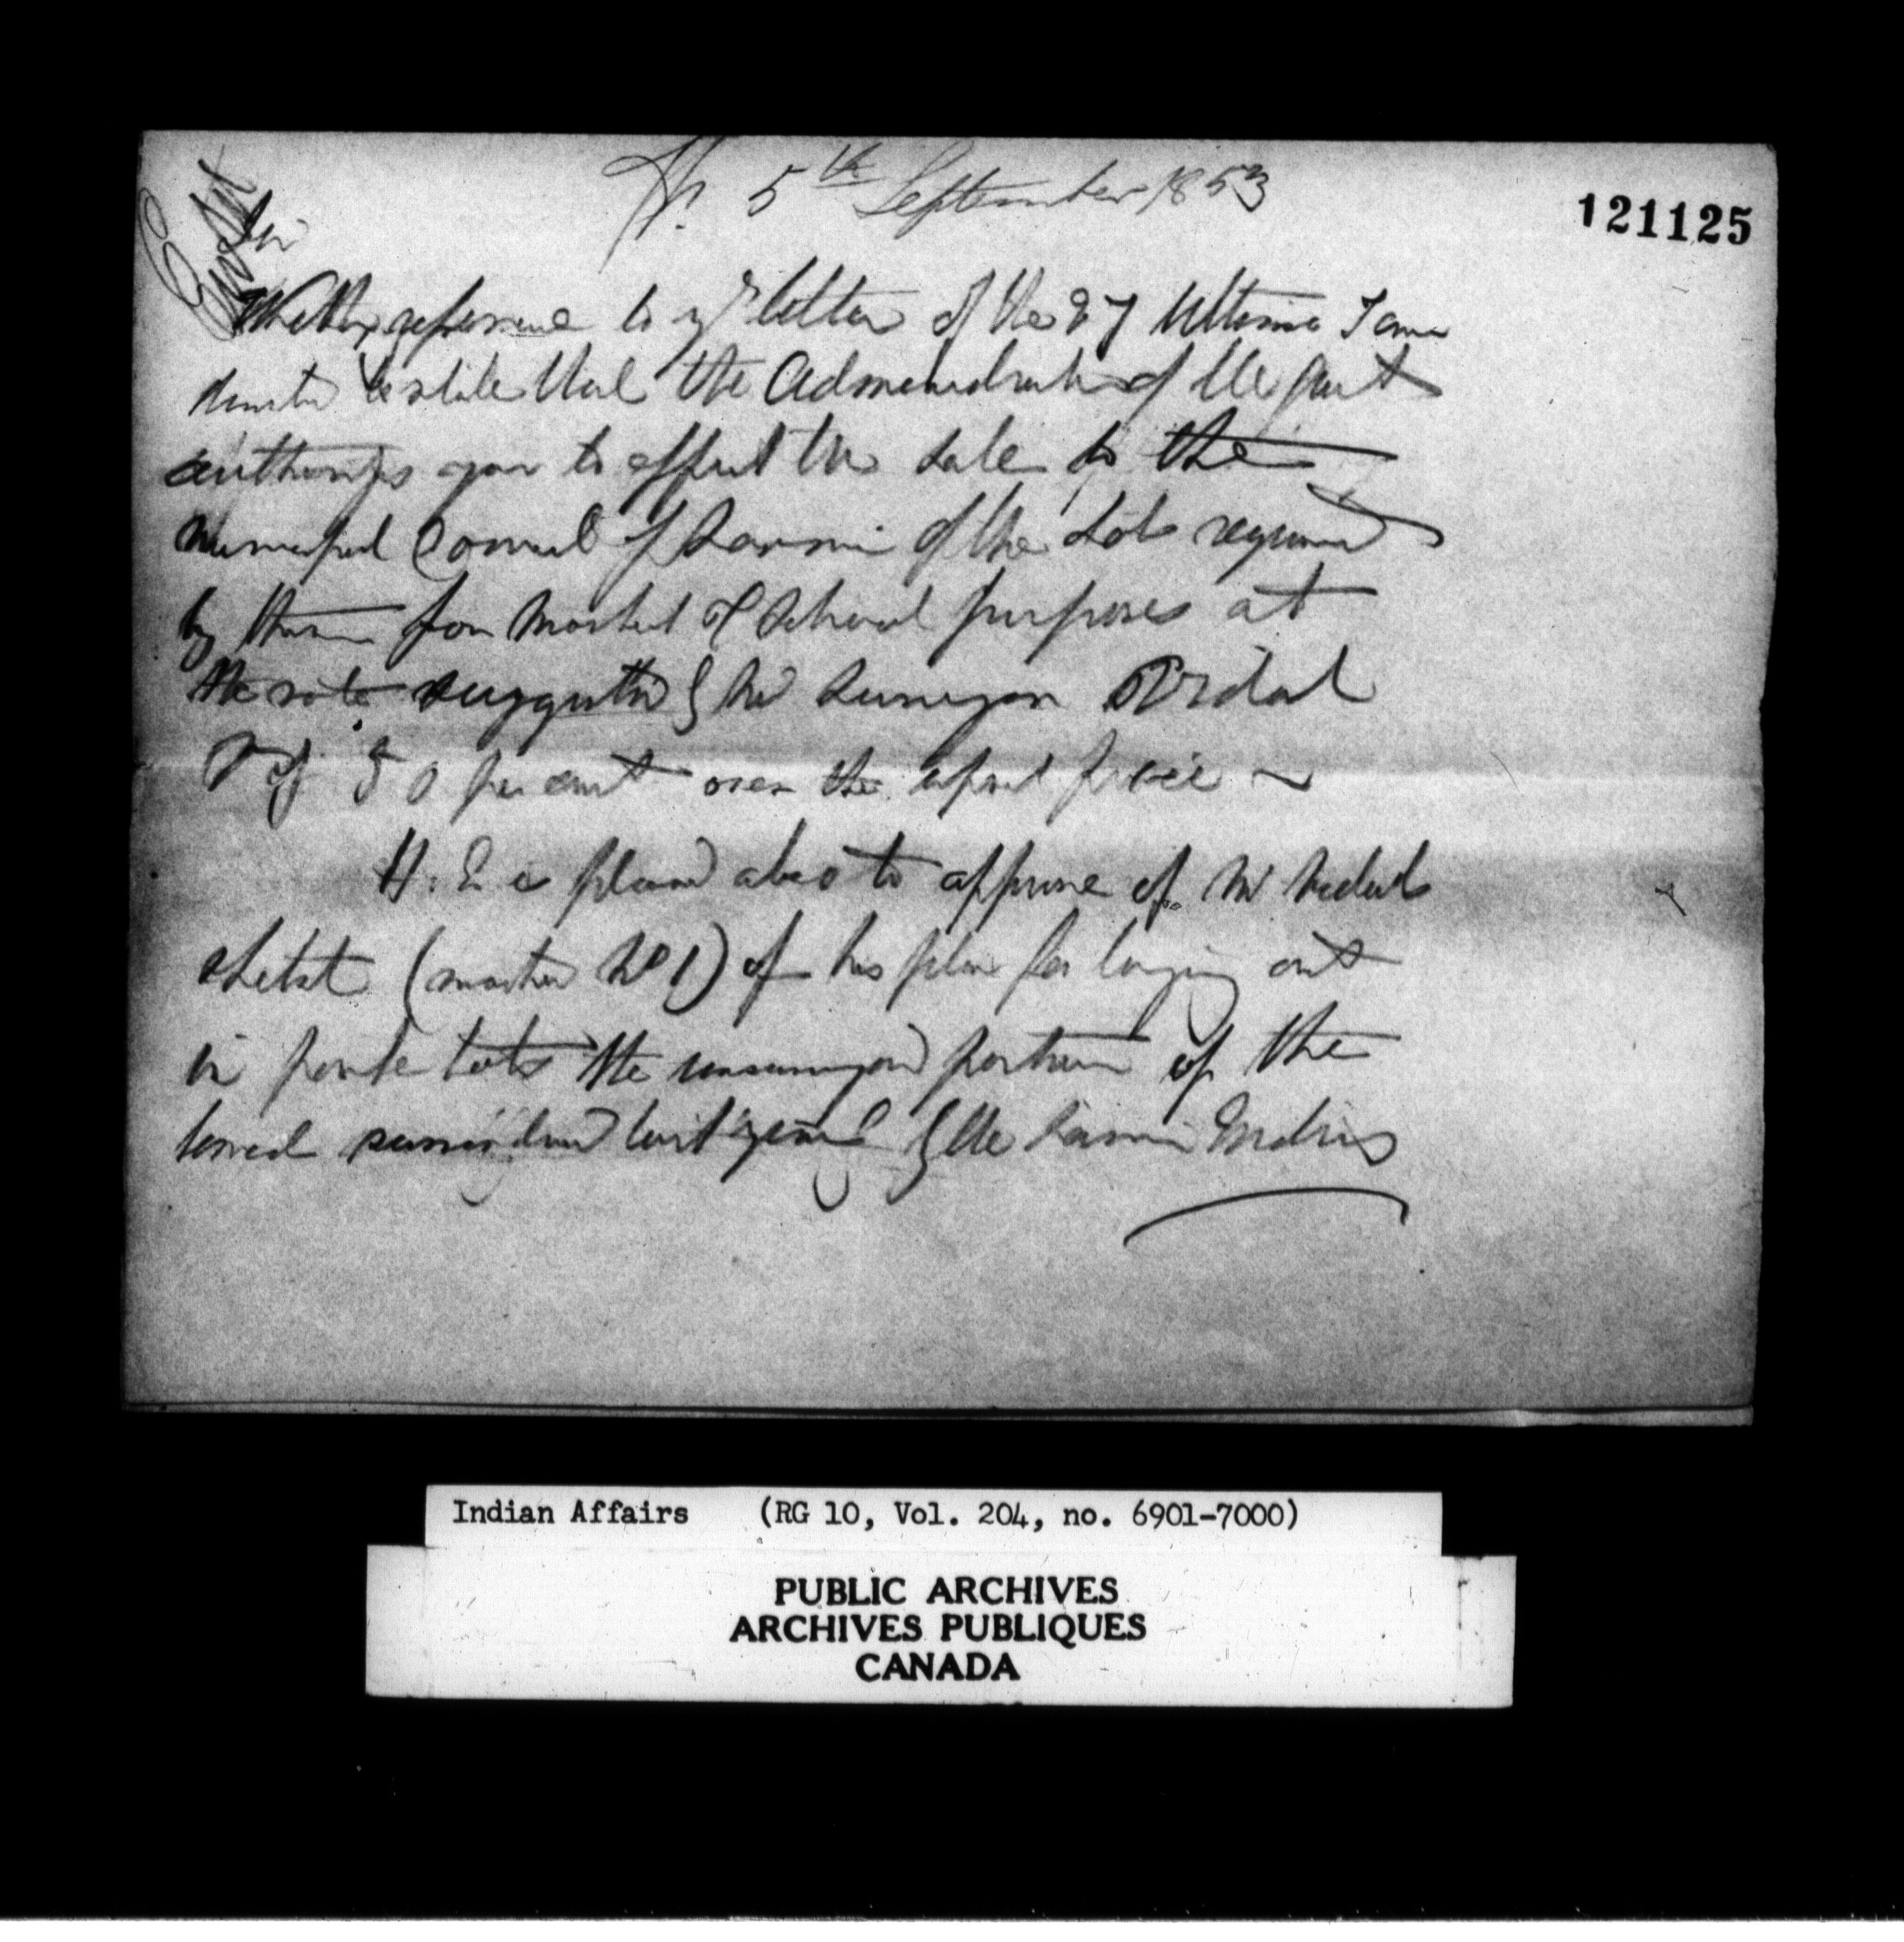 5th September 1853
121125
Sir
With reference to yr letter of the 27 Ultimo I am
directed to state that the Administrator of the Govt
authorizes you to effect the sale to the
Municipal Council of Sarnia of the Lots required
by them for Market & School purposes at
the rate suggested by Mr Surveyor Vidal
of 50 per cent over the upset price
H. E is pleased also to approve of Mr Vidals
sketch (marked No 1) of his plan for laying out
in park lots the unsurveyed portion of the
land surrendered last year by the Sarnia Indians
Indian Affairs (RG 10, Vol. 204, no. 6901-7000)
PUBLIC ARCHIVES
ARCHIVES PUBLIQUES
CANADA